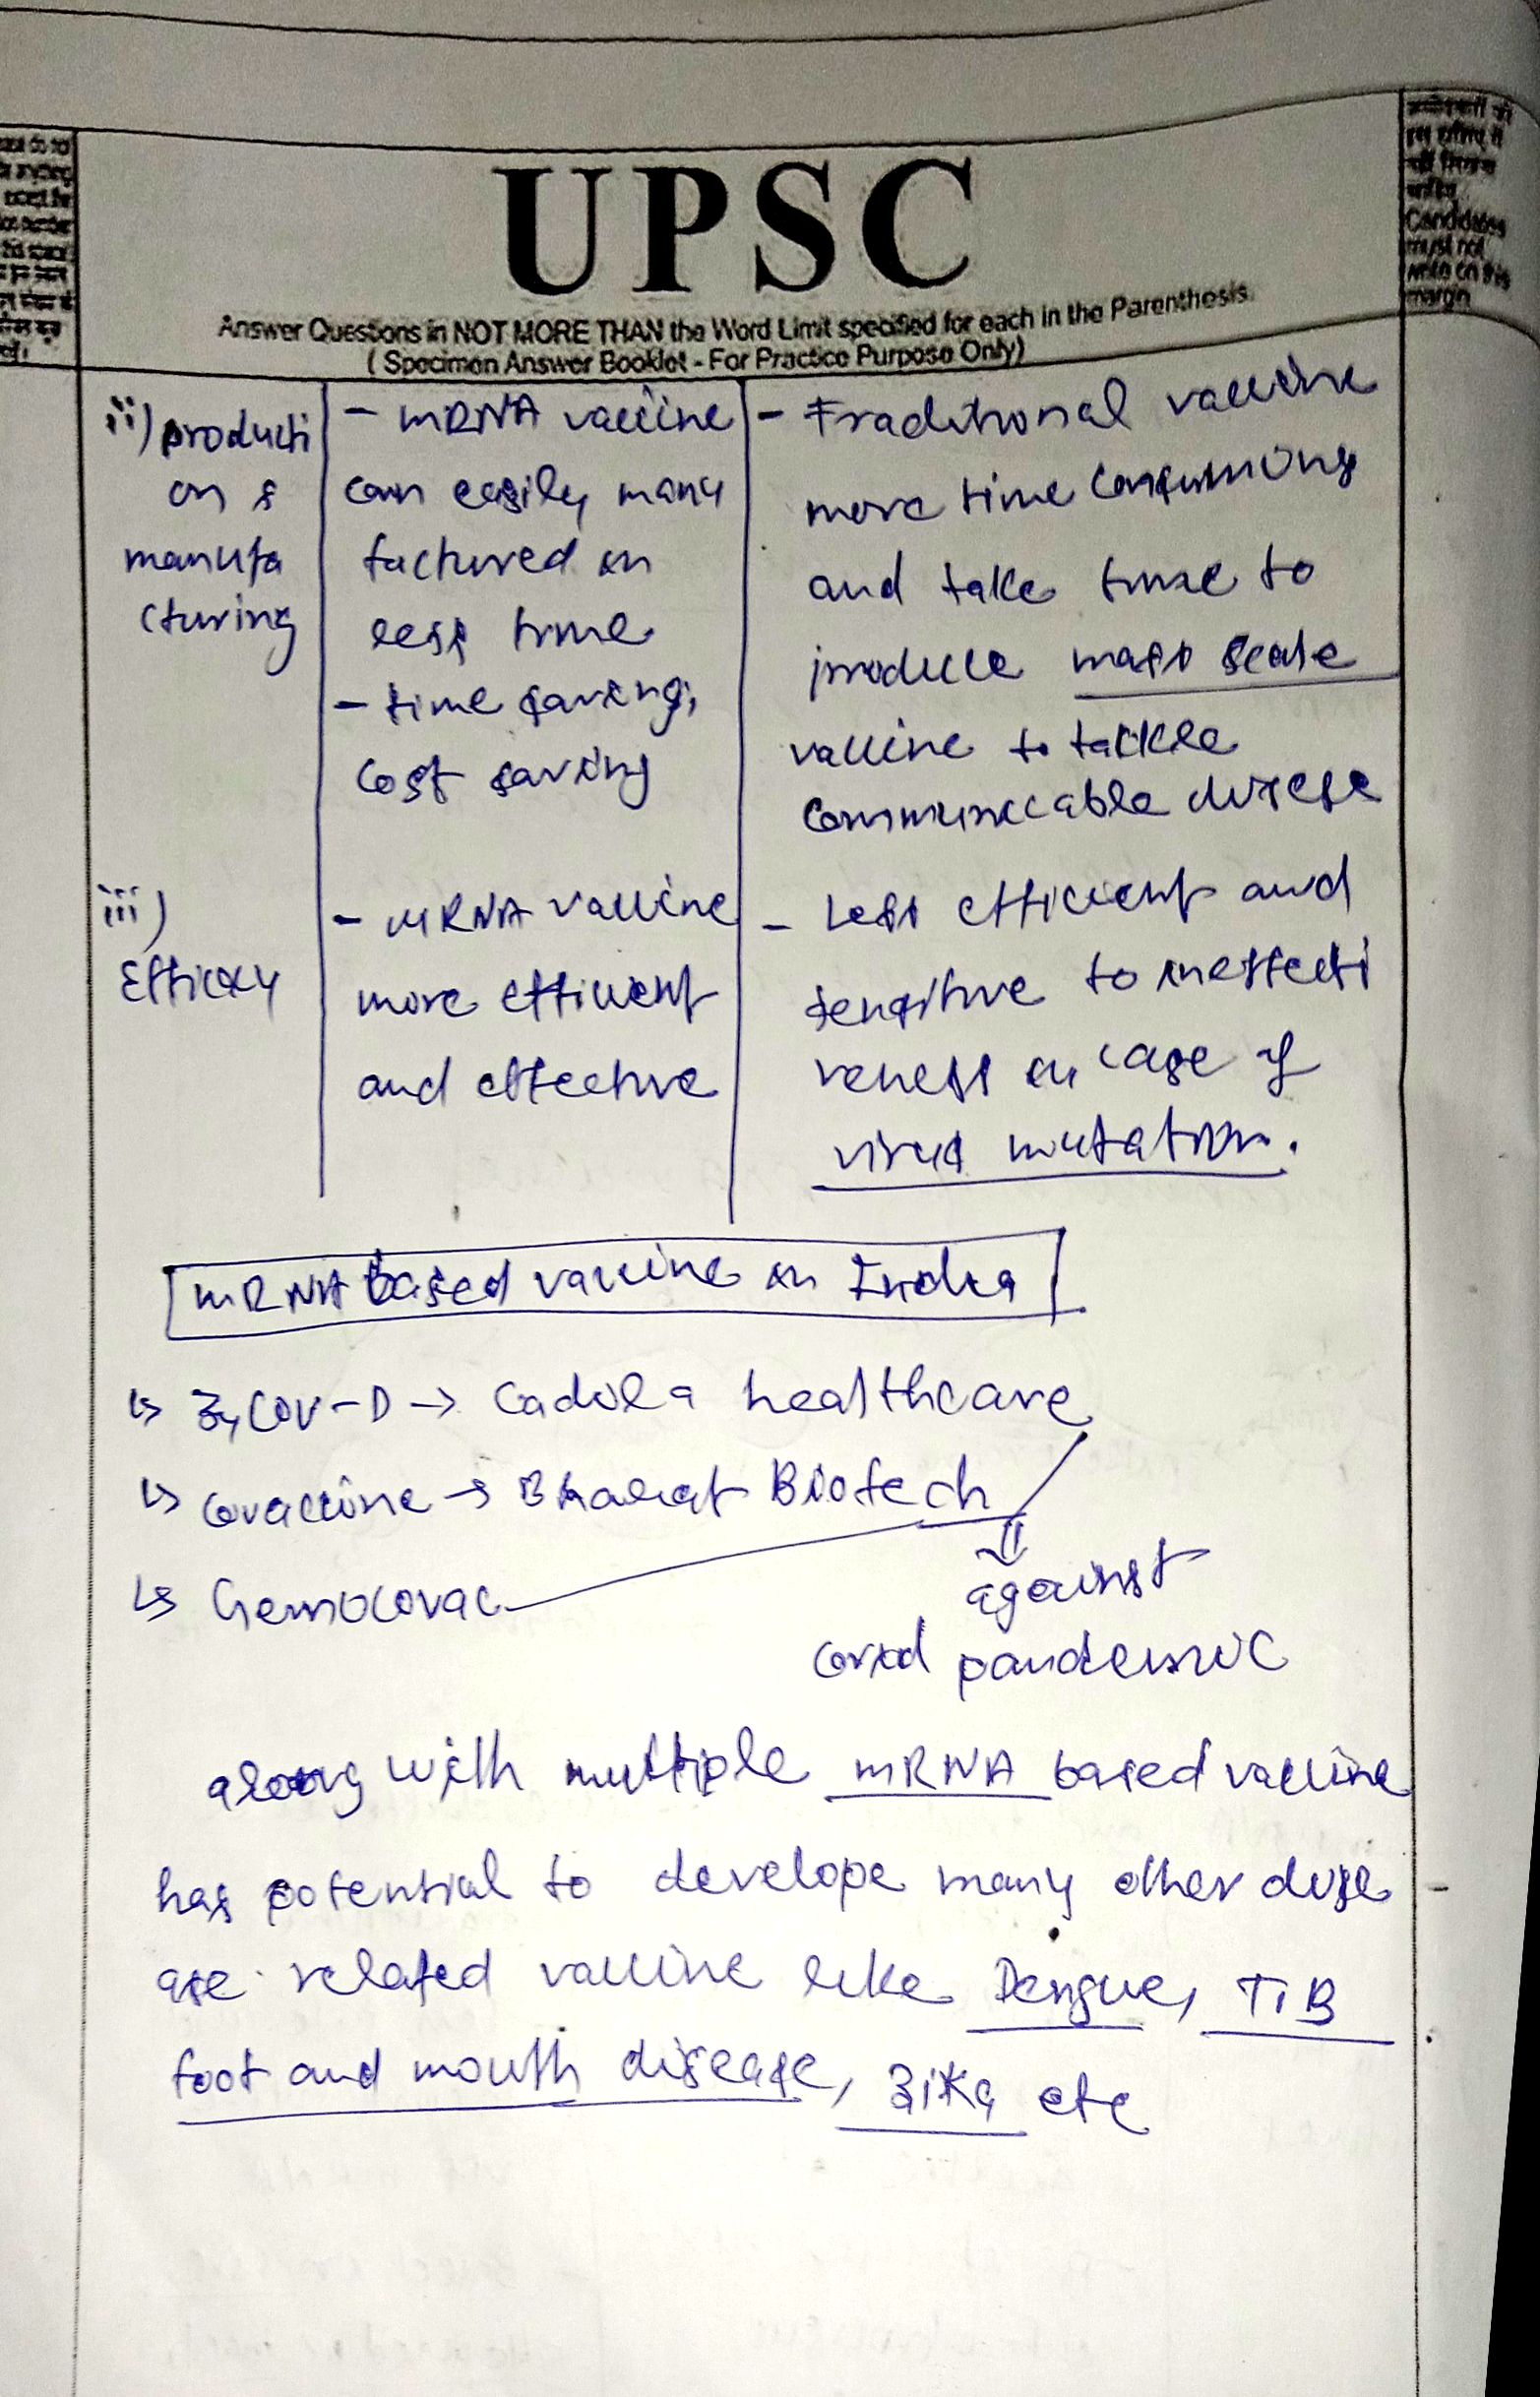 UPSC
Answer Questions in NOT MORE THAN the Word Limit specified for each in the Parenthesis.
( Specimen Answer Booklet - For Practice Purpose Only)
उम्मीदवारों को
इस हाशिए में
नहीं लिखना
चाहिए
Candidates
must not
write on this
margin
ii) producti
on &
manufa
cturing
- mRNA vaccine
can easily manu
factured in
less time
- time saving,
cost saving
- Traditional vaccine
more time consuming
and take time to
produce mass scale
vaccine to tackle
communicable disease
iii)
Efficacy
- mRNA vaccine
more efficient
and effective
- Less efficient and
sensitive to ineffecti
veness in case of
virus mutation.
mRNA based vaccine in India
↳ ZyCOV-D → Cadila healthcare
↳ Covaccine → Bharat Biotech
↳ Gemocovac
against
covid pandemic
along with multiple mRNA based vaccine
has potential to develope many other dise
ase related vaccine like Dengue, TB
foot and mouth disease, Zika etc